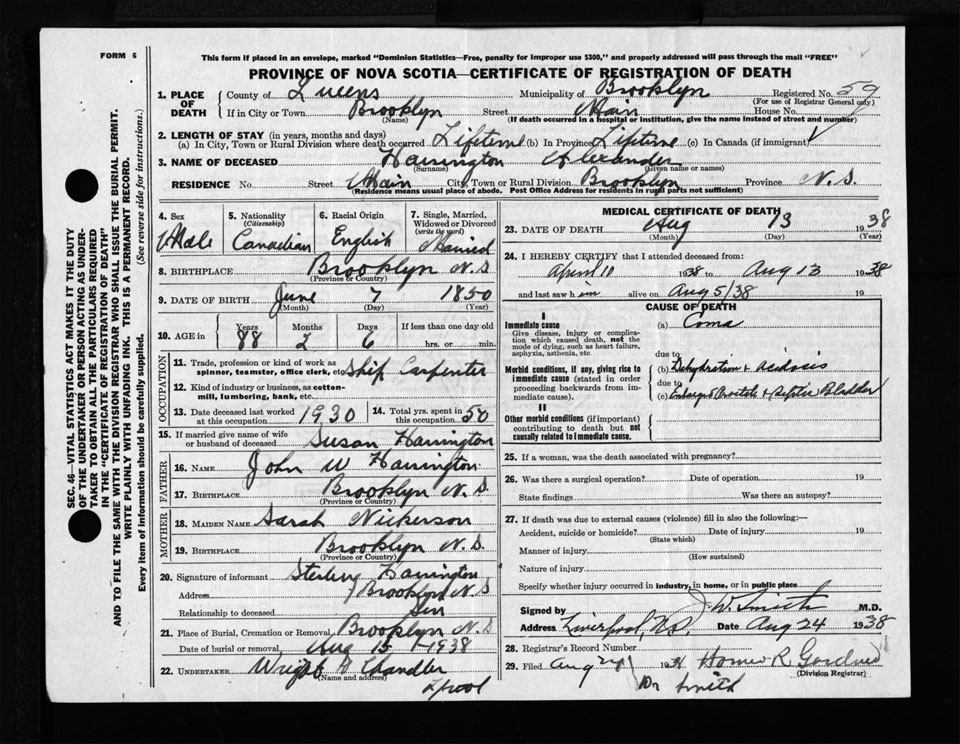 FORM 6
This form if placed in an envelope, marked "Dominion Statistics—Free, penalty for improper use $300," and properly addressed will pass through the mail "FREE"
PROVINCE OF NOVA SCOTIA—CERTIFICATE OF REGISTRATION OF DEATH
SEC. 46—VITAL STATISTICS ACT MAKES IT THE DUTY
OF THE UNDERTAKER OR PERSON ACTING AS UNDER-
TAKER TO OBTAIN ALL THE PARTICULARS REQUIRED
IN THE "CERTIFICATE OF REGISTRATION OF DEATH"
AND TO FILE THE SAME WITH THE DIVISION REGISTRAR WHO SHALL ISSUE THE BURIAL PERMIT.
WRITE PLAINLY WITH UNFADING INK. THIS IS A PERMANENT RECORD.
Every item of information should be carefully supplied. (See reverse side for instructions.)
1. PLACE OF DEATH
County of Queens Municipality of Brooklyn Registered No. 59
(For use of Registrar General only)
If in City or Town Brooklyn Street Main House No.
(Name) (If death occurred in a Hospital or Institution, give the name instead of street and number)
2. LENGTH OF STAY (in years, months and days)
(a) In City, Town or Rural Division where death occurred Lifetime (b) In Province Lifetime (c) In Canada (if immigrant)
3. NAME OF DECEASED Harrington Alexander
(Surname) (Given name or names)
RESIDENCE No. Street Main City, Town or Rural Division Brooklyn Province N.S.
(Residence means usual place of abode. Post Office Address for residents in rural parts not sufficient)
4. Sex Male
5. Nationality (Citizenship) Canadian
6. Racial Origin English
7. Single, Married, Widowed or Divorced (write the word) Married
8. BIRTHPLACE Brooklyn N.S
(Province or Country)
9. DATE OF BIRTH June 7 1850
(Month) (Day) (Year)
10. AGE in Years 88 Months 2 Days 6 If less than one day old hrs. or min.
OCCUPATION
11. Trade, profession or kind of work as spinner, teamster, office clerk, etc. Ship Carpenter
12. Kind of industry or business, as cotton-mill, lumbering, bank, etc.
13. Date deceased last worked at this occupation 1930
14. Total yrs. spent in this occupation 50
15. If married give name of wife or husband of deceased Susan Harrington
FATHER
16. NAME John W Harrington
17. BIRTHPLACE Brooklyn N.S
(Province or Country)
MOTHER
18. MAIDEN NAME Sarah Nickerson
19. BIRTHPLACE Brooklyn N.S.
(Province or Country)
20. Signature of informant Sterling Harrington
Address Brooklyn N.S
Relationship to deceased Son
21. Place of Burial, Cremation or Removal Brooklyn N.S
Date of burial or removal Aug 15 1938
22. UNDERTAKER Wright & Chandler
(Name and address)
L'pool
MEDICAL CERTIFICATE OF DEATH
23. DATE OF DEATH Aug 13 1938
(Month) (Day)
24. I HEREBY CERTIFY that I attended deceased from:
April 10 1938 to Aug 13 1938
and last saw him alive on Aug 5/38 19
CAUSE OF DEATH
I
Immediate cause
Give disease, injury or complication which caused death, not the mode of dying, such as heart failure, asphyxia, asthenia, etc.
(a) Coma
due to
Morbid conditions, if any, giving rise to immediate cause (stated in order proceeding backwards from immediate cause).
(b) Dehydration & Acidosis
due to
(c) Enlarged Prostate & Septic Bladder
II
Other morbid conditions (if important) contributing to death but not causally related to immediate cause.
25. If a woman, was the death associated with pregnancy?
26. Was there a surgical operation? Date of operation 19
State findings Was there an autopsy?
27. If death was due to external causes (violence) fill in also the following:—
Accident, suicide or homicide? Date of injury 19
(State which)
Manner of injury
(How sustained)
Nature of injury
Specify whether injury occurred in industry, in home, or in public place
Signed by J.W. Smith M.D.
Address Liverpool, N.S. Date Aug 24 1938
28. Registrar's Record Number
29. Filed Aug 24 1938 Homer R Gardner
(Division Registrar)
Dr Smith